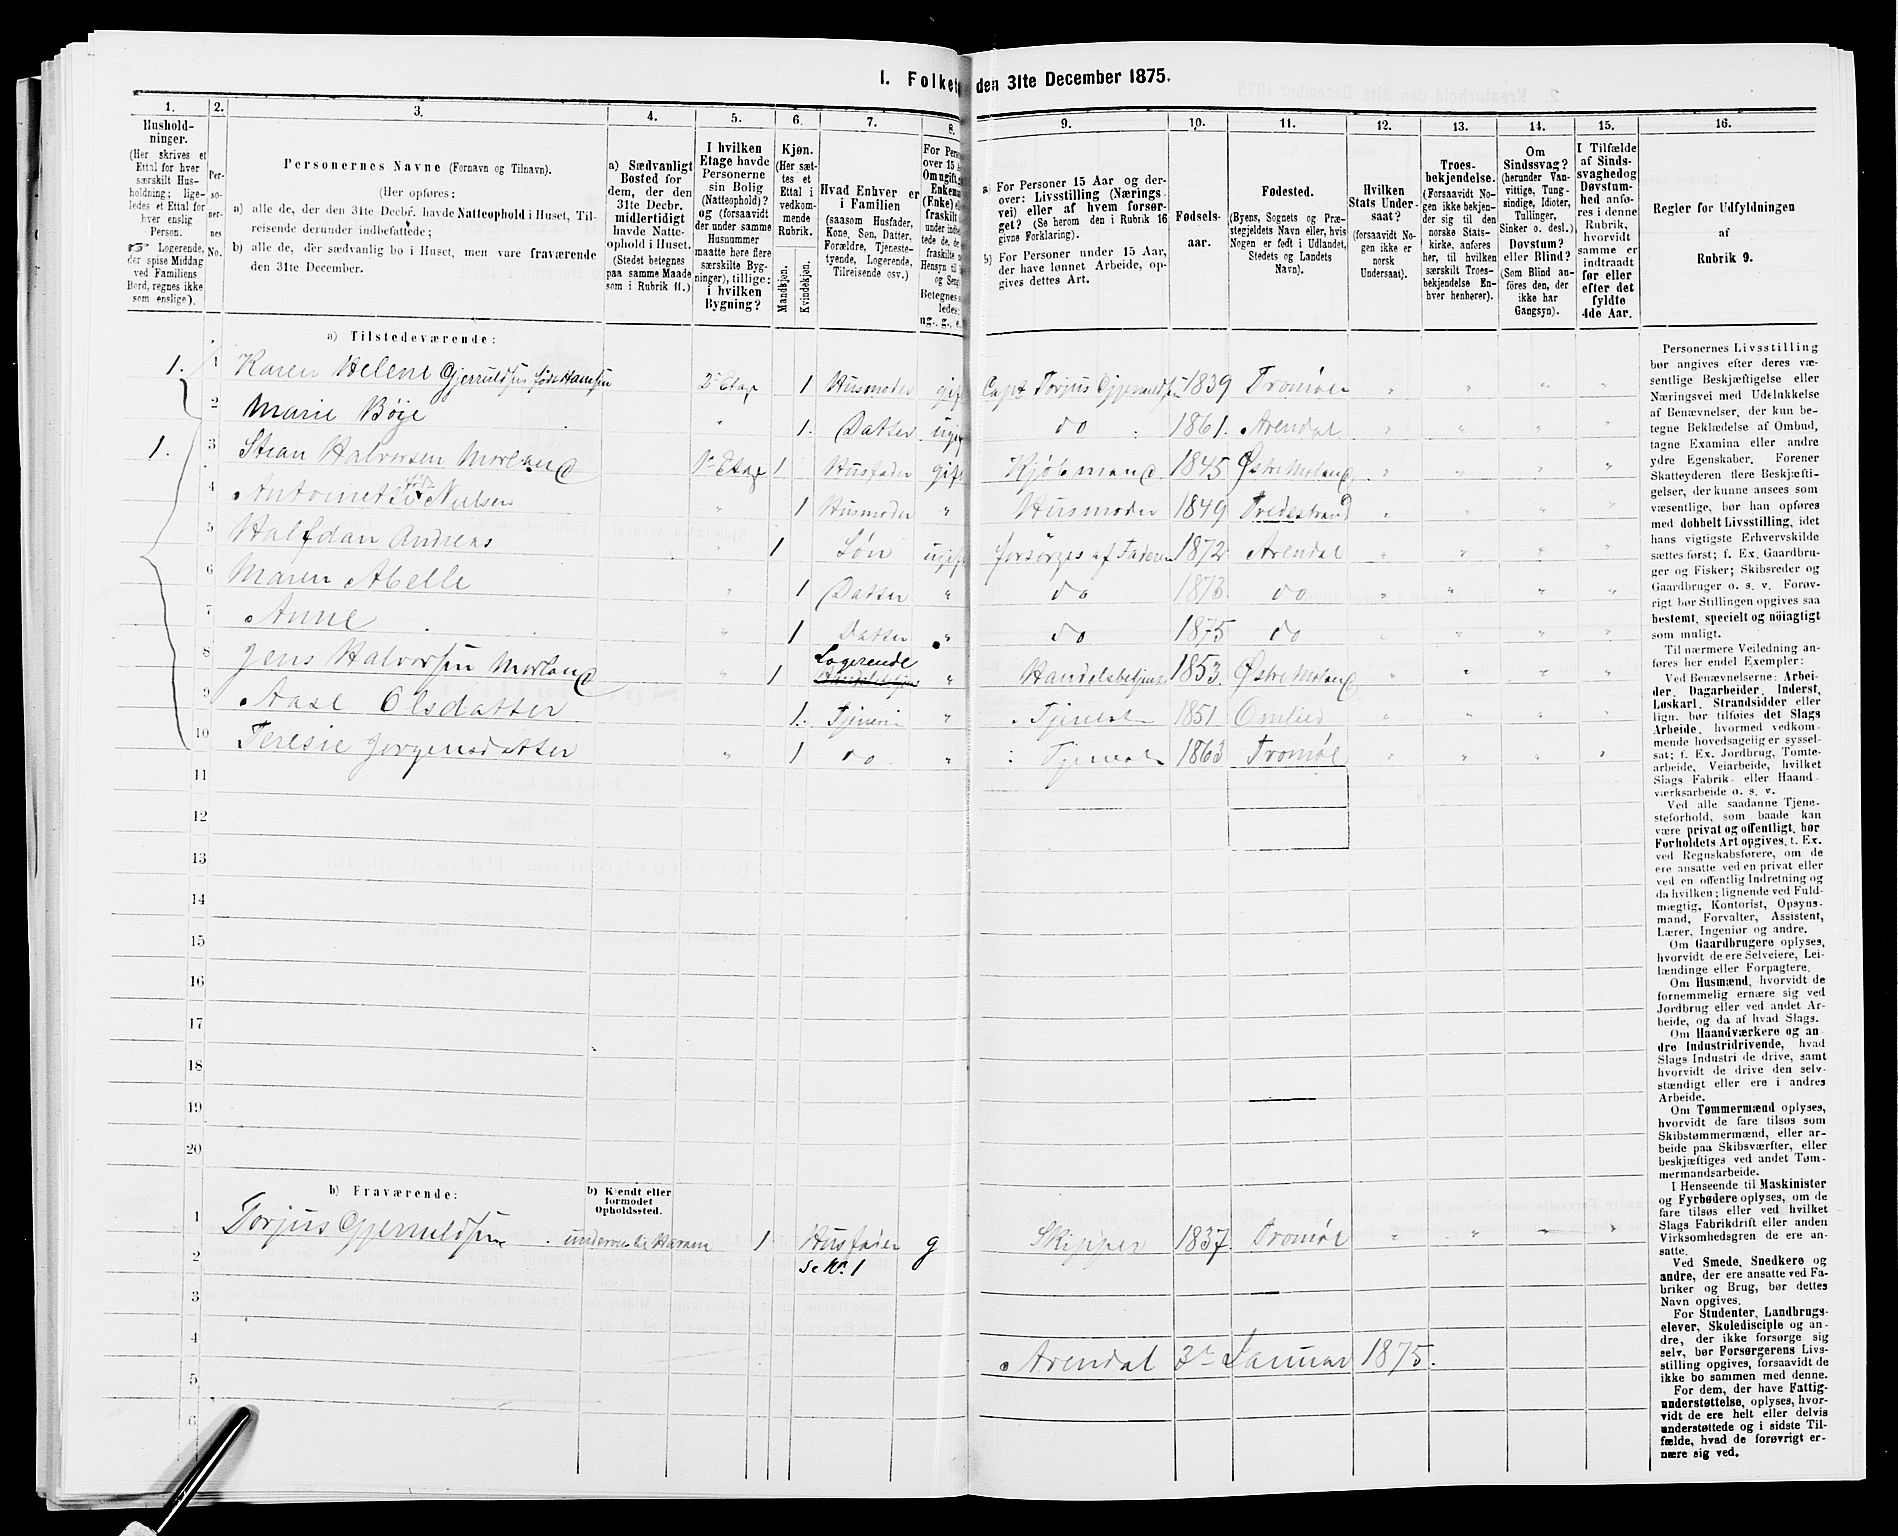 1. Folket den 31te December 1875.
1. 2. 3. 4. 5. 6. 7. 8. 9. 10. 11. 12. 13. 14. 15. 16.
Hushold-
ninger.
(Her skrives et
Ettal for hver
særskilt Hus-
holdning; lige-
ledes et Ettal for
hver enslig
Person.
☞ Logerende,
der spise Middag
ved Familiens
Bord, regnes ikke
som enslige).
Per-
so-
ner-
nes
No.
Personernes Navne (Fornavn og Tilnavn).
(Her opføres:
a) alle de, der den 31te Decbr. havde Natteophold i Huset, Til-
reisende derunder indbefattede;
b) alle de, der sædvanlig bo i Huset, men vare fraværende
den 31te December.
a) Sædvanligt
Bosted for
dem, der den
31te Decbr.
midlertidigt
havde Natte-
ophold i Huset.
(Stedet betegnes
paa samme Maade
som i Rubrik 11.)
I hvilken
Etage havde
Personerne
sin Bolig
(Natteophold)?
og (forsaavidt
der under samme
Husnummer
maatte høre flere
særskilte Byg-
ninger), tillige:
i hvilken
Bygning?
Kjøn.
(Her sæt-
tes et
Ettal i
vedkom-
mende
Rubrik.
Mandkjøn.
Kvindekjøn.
Hvad Enhver er
i Familien
(saasom Husfader,
Kone, Søn, Datter,
Forældre, Tjeneste-
tyende, Logerende,
Tilreisende osv.)
For Pers
over 15 A
Om ugift,
Enkema
(Enke) e
fraskilt
under ind
tede de,
fraskilte
Hensyn til
og Seng
Betegnes
ledes:
ug., g., e.
a) For Personer 15 Aar og der-
over: Livsstilling (Nærings
vei) eller af hvem forsør-
get? (Se herom den i Rubrik 16
givne Forklaring).
b) For Personer under 15 Aar,
der have lønnet Arbeide, op-
gives dettes Art.
Fødsels-
aar.
Fødested.
(Byens, Sognets og Præ-
stegjeldets Navn eller, hvis
Nogen er født i Udlandet,
Stedets og Landets
Navn).
Hvilken
Stats Under-
saat?
(forsaavidt No-
gen ikke er
norsk
Undersaat).
Troes-
bekjendelse.
(Forsaavidt No-
gen ikke bekjen-
der sig til den
norske Stats-
kirke, anføres
her, til hvilken
særskilt Troes-
bekjendelse En-
hver henhører).
Om
Sindssvag?
(herunder Van-
vittige, Tung-
sindige, Idioter,
Tullinger,
Sinker o. desl.)
Døvstum?
eller Blind?
(Som Blind an-
føres den, der
ikke har
Gangsyn).
I Tilfælde
af Sinds-
svaghed og
Døvstum-
hed anfø-
res i denne
Rubrik,
hvorvidt
samme er
indtraadt
før eller
efter det
fyldte
4de Aar.
Regler for Udfyldningen
af
Rubrik 9.
a) Tilstedeværende:
1. 1 Karen Helene Gjeruldsen født Hansen 2 Etage 1 Husmoder gift Capt Torjus Gjeruldsen 1839 Tromøe " " " "
2 Marie Bøge " 1. Datter ugift do 1861. Arendal " " " "
1. 3 Stian Halvorsen Morland 1 Etage 1 Husfader gift Kjøbmand 1845 Østre Moland " " " "
4 Antoinette Nielsen " 1 Husmoder " Husmoder 1849 Tvedestrand " " " "
5 Halfdan Andreas " 1 Søn ugift forsörges af Faderen 1872 Arendal " " " "
6 Maren Abelle " 1 Datter " do 1873. do " " " "
7 Anne " 1 Datter " do 1875 do " " " "
8 Jens Halvorsen Morland " 1 Logerende " Handelsbetjent 1853. Østre Moland " " " "
9 Aase Olsdatter " 1. " Tjeneste 1851 Omlied " " " "
10 Teresie Jorgensdatter " 1 do " Tjeneste 1863 Tromøe " " " "
11
13
14
15
16
17
18
19
20
b) Fraværende:
b) Kjendt eller
formodet
Opholdssted.
1 Torjus Gjeruldsen underveis til Havann 1 Husfader g Skipper 1837. Tromøe " " " "
2 se No. 1
3
4 Arendal 3 Januar 1875.
5
6
Personernes Livsstilling
bør angives efter deres væ-
sentlige Beskjæftigelse eller
Næringsvei med Udelukkelse
af Benævnelser, der kun be-
tegne Beklædelse af Ombud,
tagne Examina eller andre
ydre Egenskaber. Forener
Skatteyderen flere Beskjæfti-
gelser, der kunne ansees som
væsentlige, bør han opføres
med dobbelt Livsstilling, idet
hans vigtigste Erhvervskilde
sættes først; f. Ex. Gaardbru-
ger og Fisker; Skibsreder og
Gaardbruger o. s. v. Forøv-
rigt bør Stillingen opgives saa
bestemt, specielt og nöiagtigt
som muligt.
Til nærmere Veiledning an-
føres her endel Exempler:
Ved Benævnelserne: Arbei-
der, Dagarbeider, Inderst,
Løskarl, Strandsidder eller
lign. bør tilføies det Slags
Arbeide, hvormed vedkom-
mende hovedsagelig er syssel-
sat; f. Ex. Jordbrug, Tomte-
arbeide, Veiarbeide, hvilket
Slags Fabrik- eller Haand
værksarbeide o. s. v.
Ved alle saadanne Tjene-
steforhold, som baade kan
være privat og offentligt, bør
Forholdets Art opgives, t. Ex.
ved Regnskabsførere, om de
ere ansatte ved en privat eller
ved en offentlig Indretning og
da hvilken; lignende ved Fuld-
mægtig, Kontorist, Opsyns-
mand, Forvalter, Assistent,
Lærer, Ingeniør og andre.
Om Gaardbrugere oplyses,
hvorvidt de ere Selveiere, Lei-
lændinge eller Forpagtere.
Om Husmænd, hvorvidt de
fornemmelig ernære sig ved
Jordbrug eller ved andet Ar-
beide, og da af hvad Slags.
Om Haandværkere og an
dre Industridrivende, hvad
Slags Industri de drive, samt
hvorvidt de drive den selv-
stændigt eller ere i andres
Arbeide.
Om Tømmermænd oplyses,
hvorvidt de fare tilsøs som
Skibstømmermænd, eller ar-
beide paa Skibsværfter, eller
beskjæftiges ved andet Tøm-
mermandsarbeide.
I Henseende til Maskinister
og Fyrbødere oplyses, om de
fare tilsøs eller ved hvilket
Slags Fabrikdrift eller anden
Virksomhedsgren de ere an-
satte.
Ved Smede, Snedkere og
andre, der ere ansatte ved Fa-
briker og Brug, bør dettes
Navn opgives.
For Studenter, Landbrugs-
elever, Skoledisciple og an-
dre, der ikke forsørge sig
selv, bør Forsørgerens Livs-
stilling opgives, forsaavidt de
ikke bo sammen med denne.
For dem, der have Fattig-
understøttelse, oplyses, hvor-
vidt de ere helt eller delvis
understøttede og i sidste Til-
fælde, hvad de forøvrigt er-
nære sig ved.